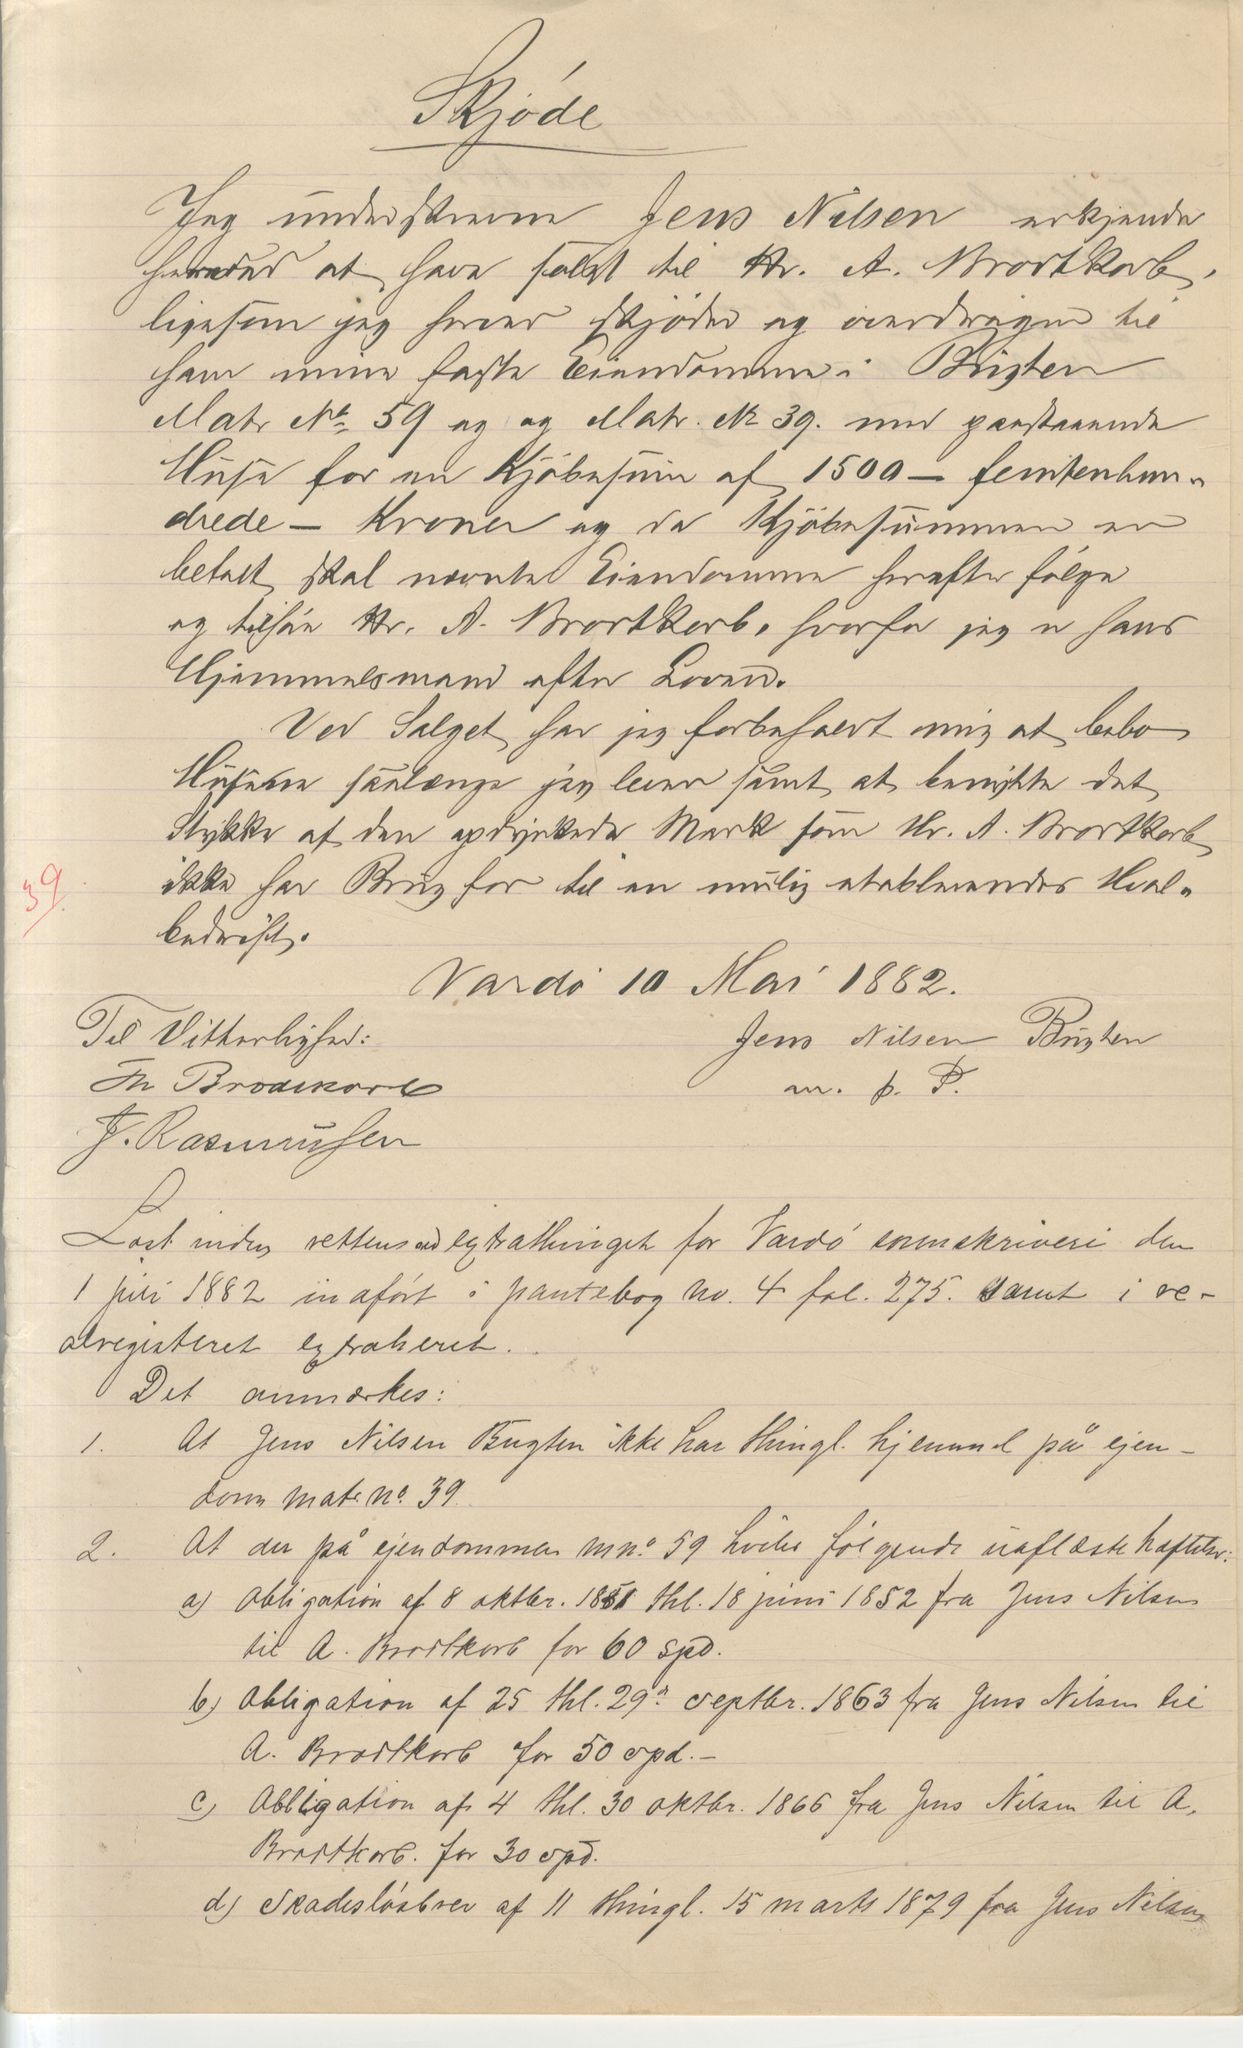 Skjøde
Jeg underskrevne Jens Nilsen erkjender
herved at have solgt til Hr. A. Brodtkorb,
ligesom jeg herved skjøder og overdrager til
ham mine faste Eiendomme i Bugten
Matr No 59 og og Matr. No 39. med paastaaende
Huse for en Kjøbesum af 1500 – femtenhun-
drede – Kroner og da Kjøbesummen er
betalt skal nævnte Eiendomme herefter følge
og tilhøre Hr. A. Brodtkorb, hvorfor jeg er hans
Hjemmelsmand efter Loven.
Ved Salget har jeg forbeholdt mig at bebo
Husene saalænge jeg lever samt at benytte det
Stykke af den opdyrkede Mark som Hr. A. Brodtkorb
ikke har Brug for til en mulig etablerendes Hval-
bedrift.
39.
Vardø 10 Mai 1882.
Til Vitterlighed:
Jens Nilsen Bugten
Th Brodtkorb
m. p. P.
J. Rasmussen
Læst inden retten ved extrathinget for Vardø sorenskriveri den
1 juli 1882 indført i pantebog no. 4 fol. 275. samt i re-
alregisteret extraheret.
Det anmærkes:
1. At Jens Nilsen Bugten ikke har thingl. hjemmel på ejen-
dom matr no. 39
2. At der på ejendommen mno. 59 hviler følgende uaflæste hæftelser:
a) Obligation af 8 oktbr. 1851 thl. 18 juni 1852 fra Jens Nilsen
til A. Brodtkorb for 60 spd.
b) Obligation af 25 thl. 29 septbr. 1863 fra Jens Nilsen til
A. Brodtkorb for 50 spd. –
c) Obligation af 4 thl. 30 oktbr. 1866 fra Jens Nilsen til A.
Brodtkorb. for 30 spd.
d) Skadesløsbrev af 11 thingl. 15 marts 1879 fra Jens Nilsen